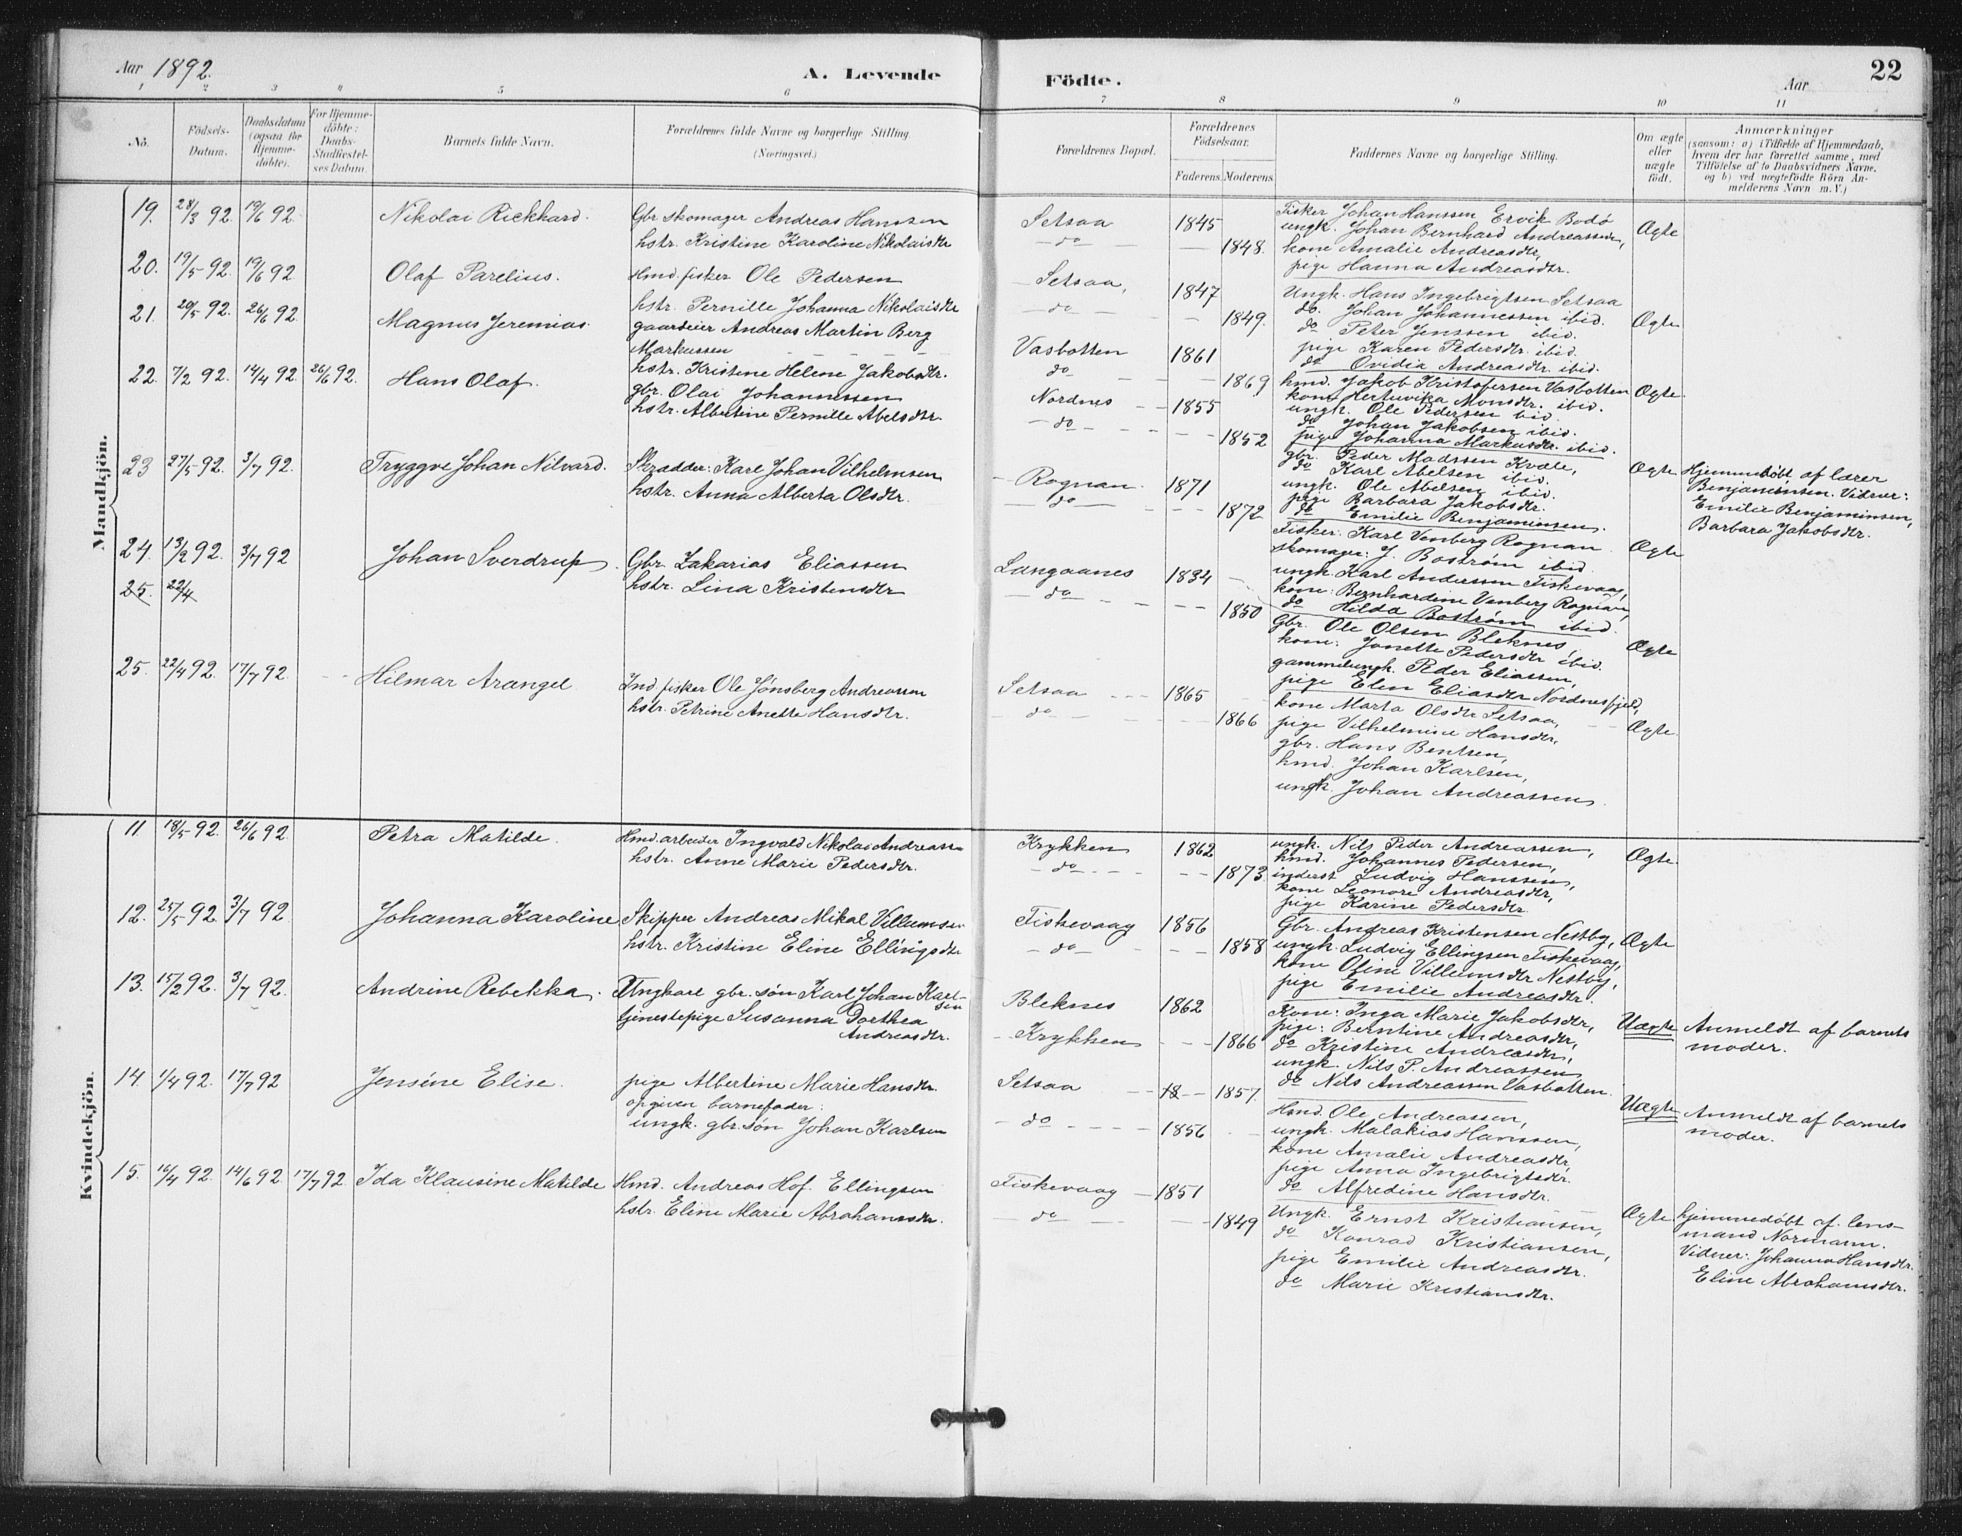 Aar 1892.
A. Levende
Födte.
Aar
22
1 2 3 4 5 6
7 8 9 10 11
No.
Födsels-
Datum.
Daabsdatum
(ogsaa for
Hjemme-
döbte).
For Hjemme-
döbte:
Daabs-
Stadfæstel-
ses Datum.
Barnets fulde Navn.
Forældrenes fulde Navne og borgerlige Stilling.
(Næringsvei.)
Forældrenes Bopæl.
Forældrenes
Födselsaar.
Faderens. Moderens.
Faddernes Navne og borgerlige Stilling.
Om ægte
eller
uægte
födt.
Anmærkninger
(saasom: a) i Tilfælde af Hjemmedaab,
hvem der har forrettet samme, med
Tilföielse af to Daabsvidners Navne,
og b) ved uægtefödte Börn An-
melderens Navn m. V.)
Mandkjön.
19. 28/3 92. 19/6 92 Nikolai Rickhard. Gbr skomager Andreas Hanssen
hstr. Kristine Karoline Nikolaisdtr
Setsaa 1845
do 1848.
Fisker Johan Hanssen Ervik Bodø
ungk. Johan Bernhard Andreassen,
kone Amalie Andreasdtr,
pige Hanna Andreasdtr.
Ægte
20. 19/5 92. 19/6 92 Olaf Parelius. Hmd. fisker Ole Pedersen
hstr. Pernille Johanna Nikolaisdtr
Setsaa, 1847
do 1849.
Ungk. Hans Ingebrigtsen Setsaa
do. Johan Johannessen ibid.
do Peter Jenssen ibid.
pige Karen Pedersdtr. ibid.
do Ovidia Andreasdtr. ibid.
Ægte
21. 20/5 92. 26/6 92. Magnus Jeremias. gaardeier Andreas Martin Berg
Markussen
hstr. Kristine Helene Jakobsdtr.
Vasbotten 1861
do 1869
hmd. Jakob Kristofersen Vasbotten
kone Hertuvika Monsdtr. ibid.
ungk. Ole Pedersen ibid.
do Johan Jakobsen ibid.
pige Johanna Markusdtr. ibid.
Ægte
22. 7/2 92. 14/4 92. 26/6 92. Hans Olaf. gbr. Olai Johannessen
hstr. Albertine Pernille Abelsdtr.
Nordnes 1855
do 1852
gbr. Peder Madssen Kvæle,
do Karl Abelsen ibid.
ungk. Ole Abelsen ibid.
pige Barbara Jakobsdtr.
do Emilie Benjaminsen.
Ægte
Hjemmedöbt af lærer
Benjaminsen. Vidner:
Emilie Benjaminsen,
Barbara Jakobsdtr.
23 27/5 92. 3/7 92. Tryggve Johan Nilvard. Skrædder: Karl Johan Vilhelmsen
hstr. Anna Alberta Olsdtr.
Rognan. 1871
do 1872
Fisker: Karl Venberg Rognan
skomager: J. Bostrøm ibid.
ungk. Karl Anderssen Fiskevaag,
kone: Bernhardine Venberg Rognan,
do Hilda Bostrøm ibid.
Ægte
24. 13/2 92. 3/7 92 Johan Sverdrup. Gbr. Zakarias Eliassen
hstr. Lina Kristensdtr
Langaanes 1834
do 1850
Gbr. Ole Olsen Bleknes,
kone: Jonette Pedersdtr ibid.
gammelungk. Peder Eliassen,
pige Elen Eliasdtr Nordnesfjeld,
Ægte
25. 22/4
25. 22/4 92. 17/7 92. Hilmar Arangel Ind. fisker Ole Jönsberg Andreassen
hstr. Petrine Anette Hansdtr.
Setsaa 1865
do 1866
kone Marta Olsdtr Setsaa,
pige Vilhelmine Hansdtr,
gbr. Hans Bentsen,
hmd. Johan Karlsen,
ungk. Johan Andreassen.
Ægte
Kvindekjön.
11 18/5 92. 26/6 92 Petra Matilde. Hmd. arbeider Ingvald Nikolai Andreassen
hstr. Anne Marie Pedersdtr.
Krykken 1862
do 1873.
ungk. Nils Peder Andreassen,
hmd. Johannes Pedersen,
inderst Ludvig Hanssen,
kone Leonore Andreasdtr,
pige Karine Pedersdtr
Ægte
12. 25/5 92. 3/7 92 Johanna Karoline Skipper Andreas Mikal Villumsen
hstr. Kristine Eline Ellingsdtr
Fiskevaag 1856
do 1858
Gbr. Andreas Kristensen Nestby,
ungk. Ludvig Ellingsen Fiskevaag,
kone Ofine Villumsdtr Nestby,
pige Emilie Andreasdtr.
Ægte
13. 15/2 92. 3/7 92. Andrine Rebekka. Ungkarl gbr. søn Karl Johan Karl-
sen
tjenestepige Susanna Dorthea
Andreasdtr.
Bleknes 1862
Krykken 1866
Kone: Inga Marie Jakobsdtr,
pige: Berntine Andreasdtr,
do Kristine Andreasdtr,
ungk. Nils P. Andreassen
do Nils Andreassen Vasbotten.
Uægte Anmeldt af barnets
moder.
14. 1/4 92. 17/7 92 Jensine Elise. pige Albertine Marie Hansdtr.
opgiven barnefader:
ungk. gbr. søn Johan Karlsen
Setsaa 18 1857
do 1856
Hmd. Ole Andreassen,
ungk. Malakias Hanssen,
kone Amalie Andreasdtr,
pige Anna Ingebrigtsdtr.
do Alfredine Hansdtr.
Uægte Anmeldt af barnets
moder.
15. 16/4 92. 14/6 92 17/7 92. Ida Klausine Matilde Hmd. Andreas Hof. Ellingsen
hstr. Eline Marie Abrahamsdtr.
Fiskevaag 1851
do 1849
Ungk. Ernst Kristiansen,
do Konrad Kristiansen,
pige Emilie Andreasdtr.
do Marie Kristiansdtr.
Ægte hjemmedöbt af lens-
mand Normann.
Vidner: Johanna Hansdtr.
Eline Abrahamsdtr.